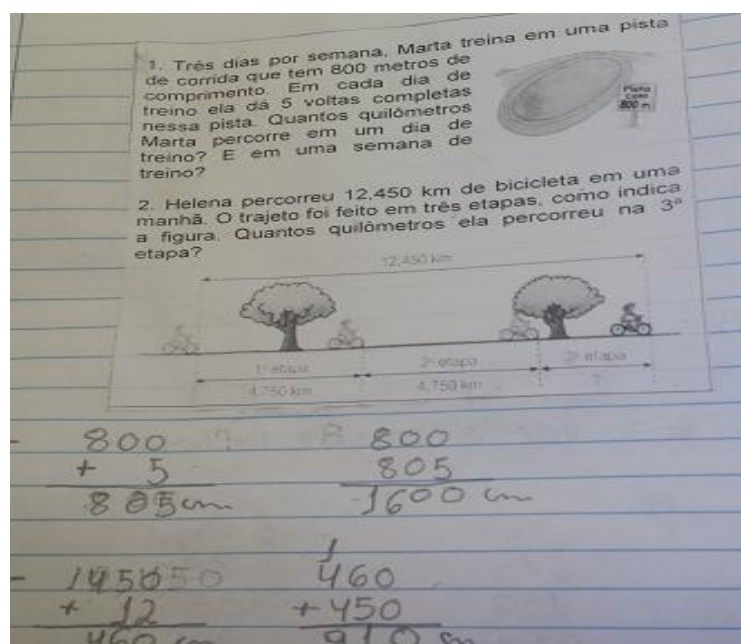 1. Três dias por semana, Marta treina em uma pista
de corrida que tem 800 metros de
comprimento. Em cada dia de
treino ela dá 5 voltas completas
nessa pista. Quantos quilômetros
Marta percorre em um dia de
treino? E em uma semana de
treino?
800 m
2. Helena percorreu 12,450 km de bicicleta em uma
manhã. O trajeto foi feito em três etapas, como indica
a figura. Quantos quilômetros ela percorreu na 3ª
etapa?
12,450 km
1ª etapa 2ª etapa 3ª etapa
4,750 km 4,750 km ?
- 800 800
+ 5 805
805 cm 1600 cm
1
- 1450 460
+ 12 +450
460 cm 910 cm